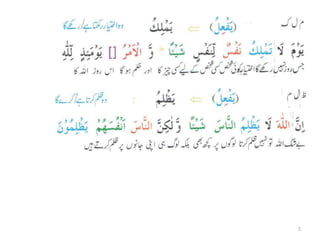 م ل ک (يَفْعِلُ) ⇐ يَمْلِكُ وہ اختیار رکھتا ہے/رکھے گا
يَوْمَ لَا تَمْلِكُ نَفْسٌ لِّنَفْسٍ شَيْئًا وَّ الْاَمْرُ [] يَوْمَئِذٍ لِّلّٰهِ
جس روز نہیں رکھے گا اختیار کوئی شخص کسی شخص کے لیے کسی چیز کا اور حکم ہو گا اس روز اللہ کا
ظ ل م (يَفْعِلُ) ⇐ يَظْلِمُ وہ ظلم کرتا ہے/کرے گا
اِنَّ اللّٰهَ لَا يَظْلِمُ النَّاسَ شَيْئًا وَّ لٰكِنَّ النَّاسَ اَنْفُسَهُمْ يَظْلِمُوْنَ
بے شک اللہ تو نہیں ظلم کرتا لوگوں پر کچھ بھی بلکہ لوگ ہی اپنی جانوں پر ظلم کرتے ہیں